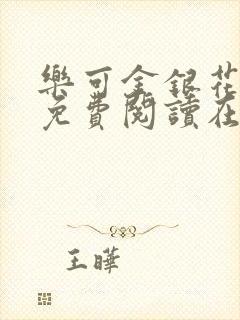 樂可金銀花
免費閱讀在
王曄